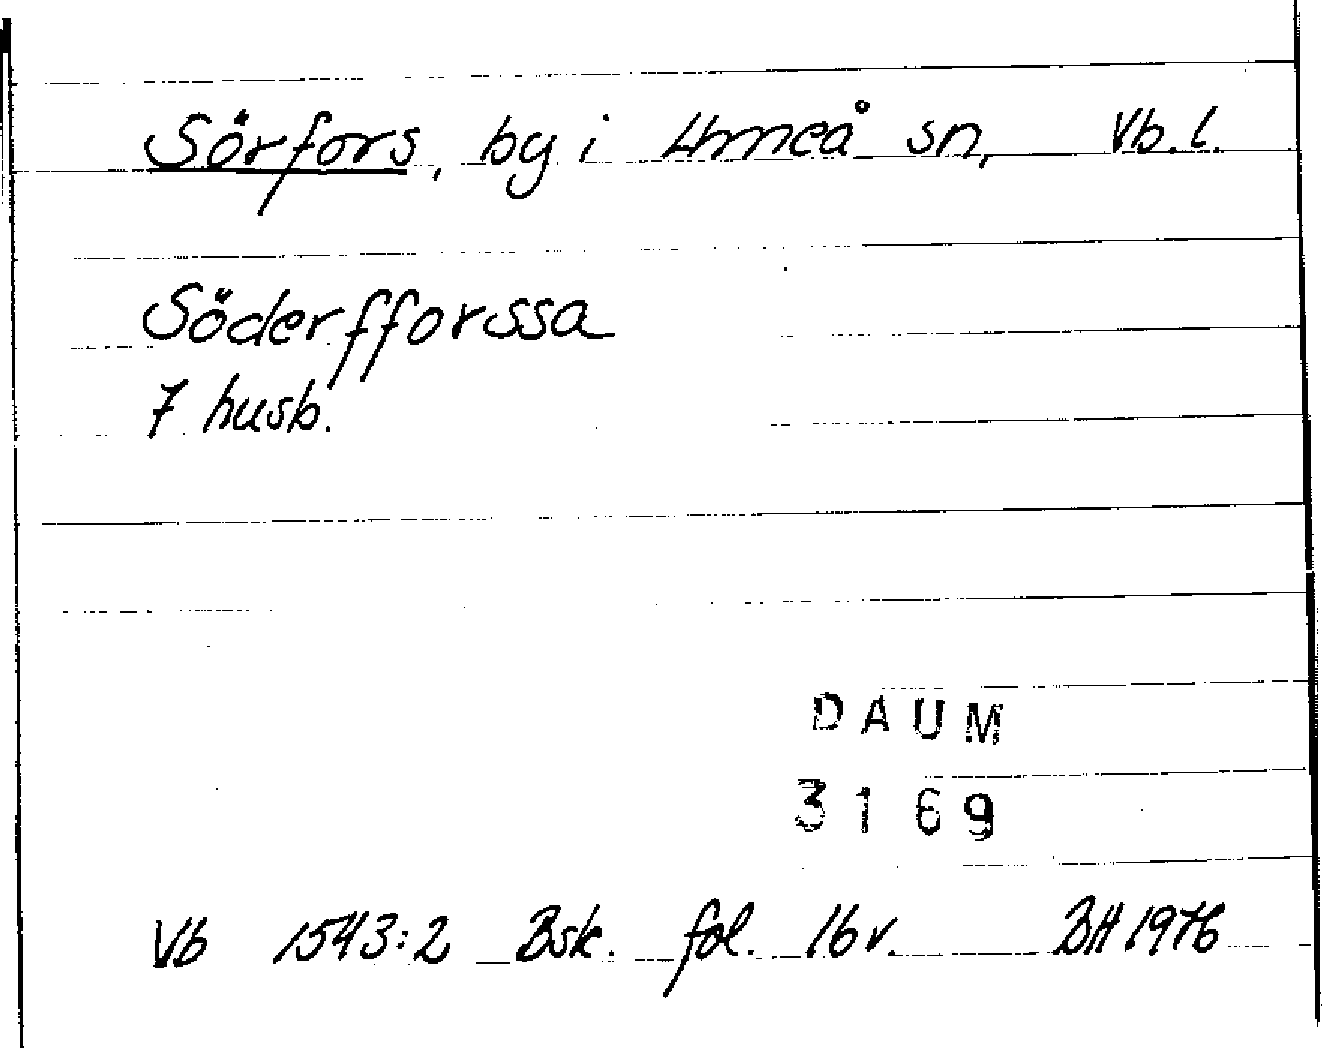 Sörfors, by i Umeå sn, Vb. l.
Söderfforssa
7 husb.
DAUM
3169
Vb 1543:2 Bsk. fol. 16 v. BH 1976